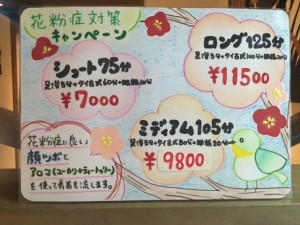 花粉症対策
キャンペーン
ロング125分
足浴5分+タイ古式100分+眼精20分
¥11500
ショート75分
足浴5分+タイ古式60分+眼精10分
¥7000
ミディアム105分
足浴5分+タイ古式80分+眼精20分
¥9800
花粉症に良い
顔ツボと
アロマ(ユーカリ+ティートゥリー)
を使って鼻前を流します。